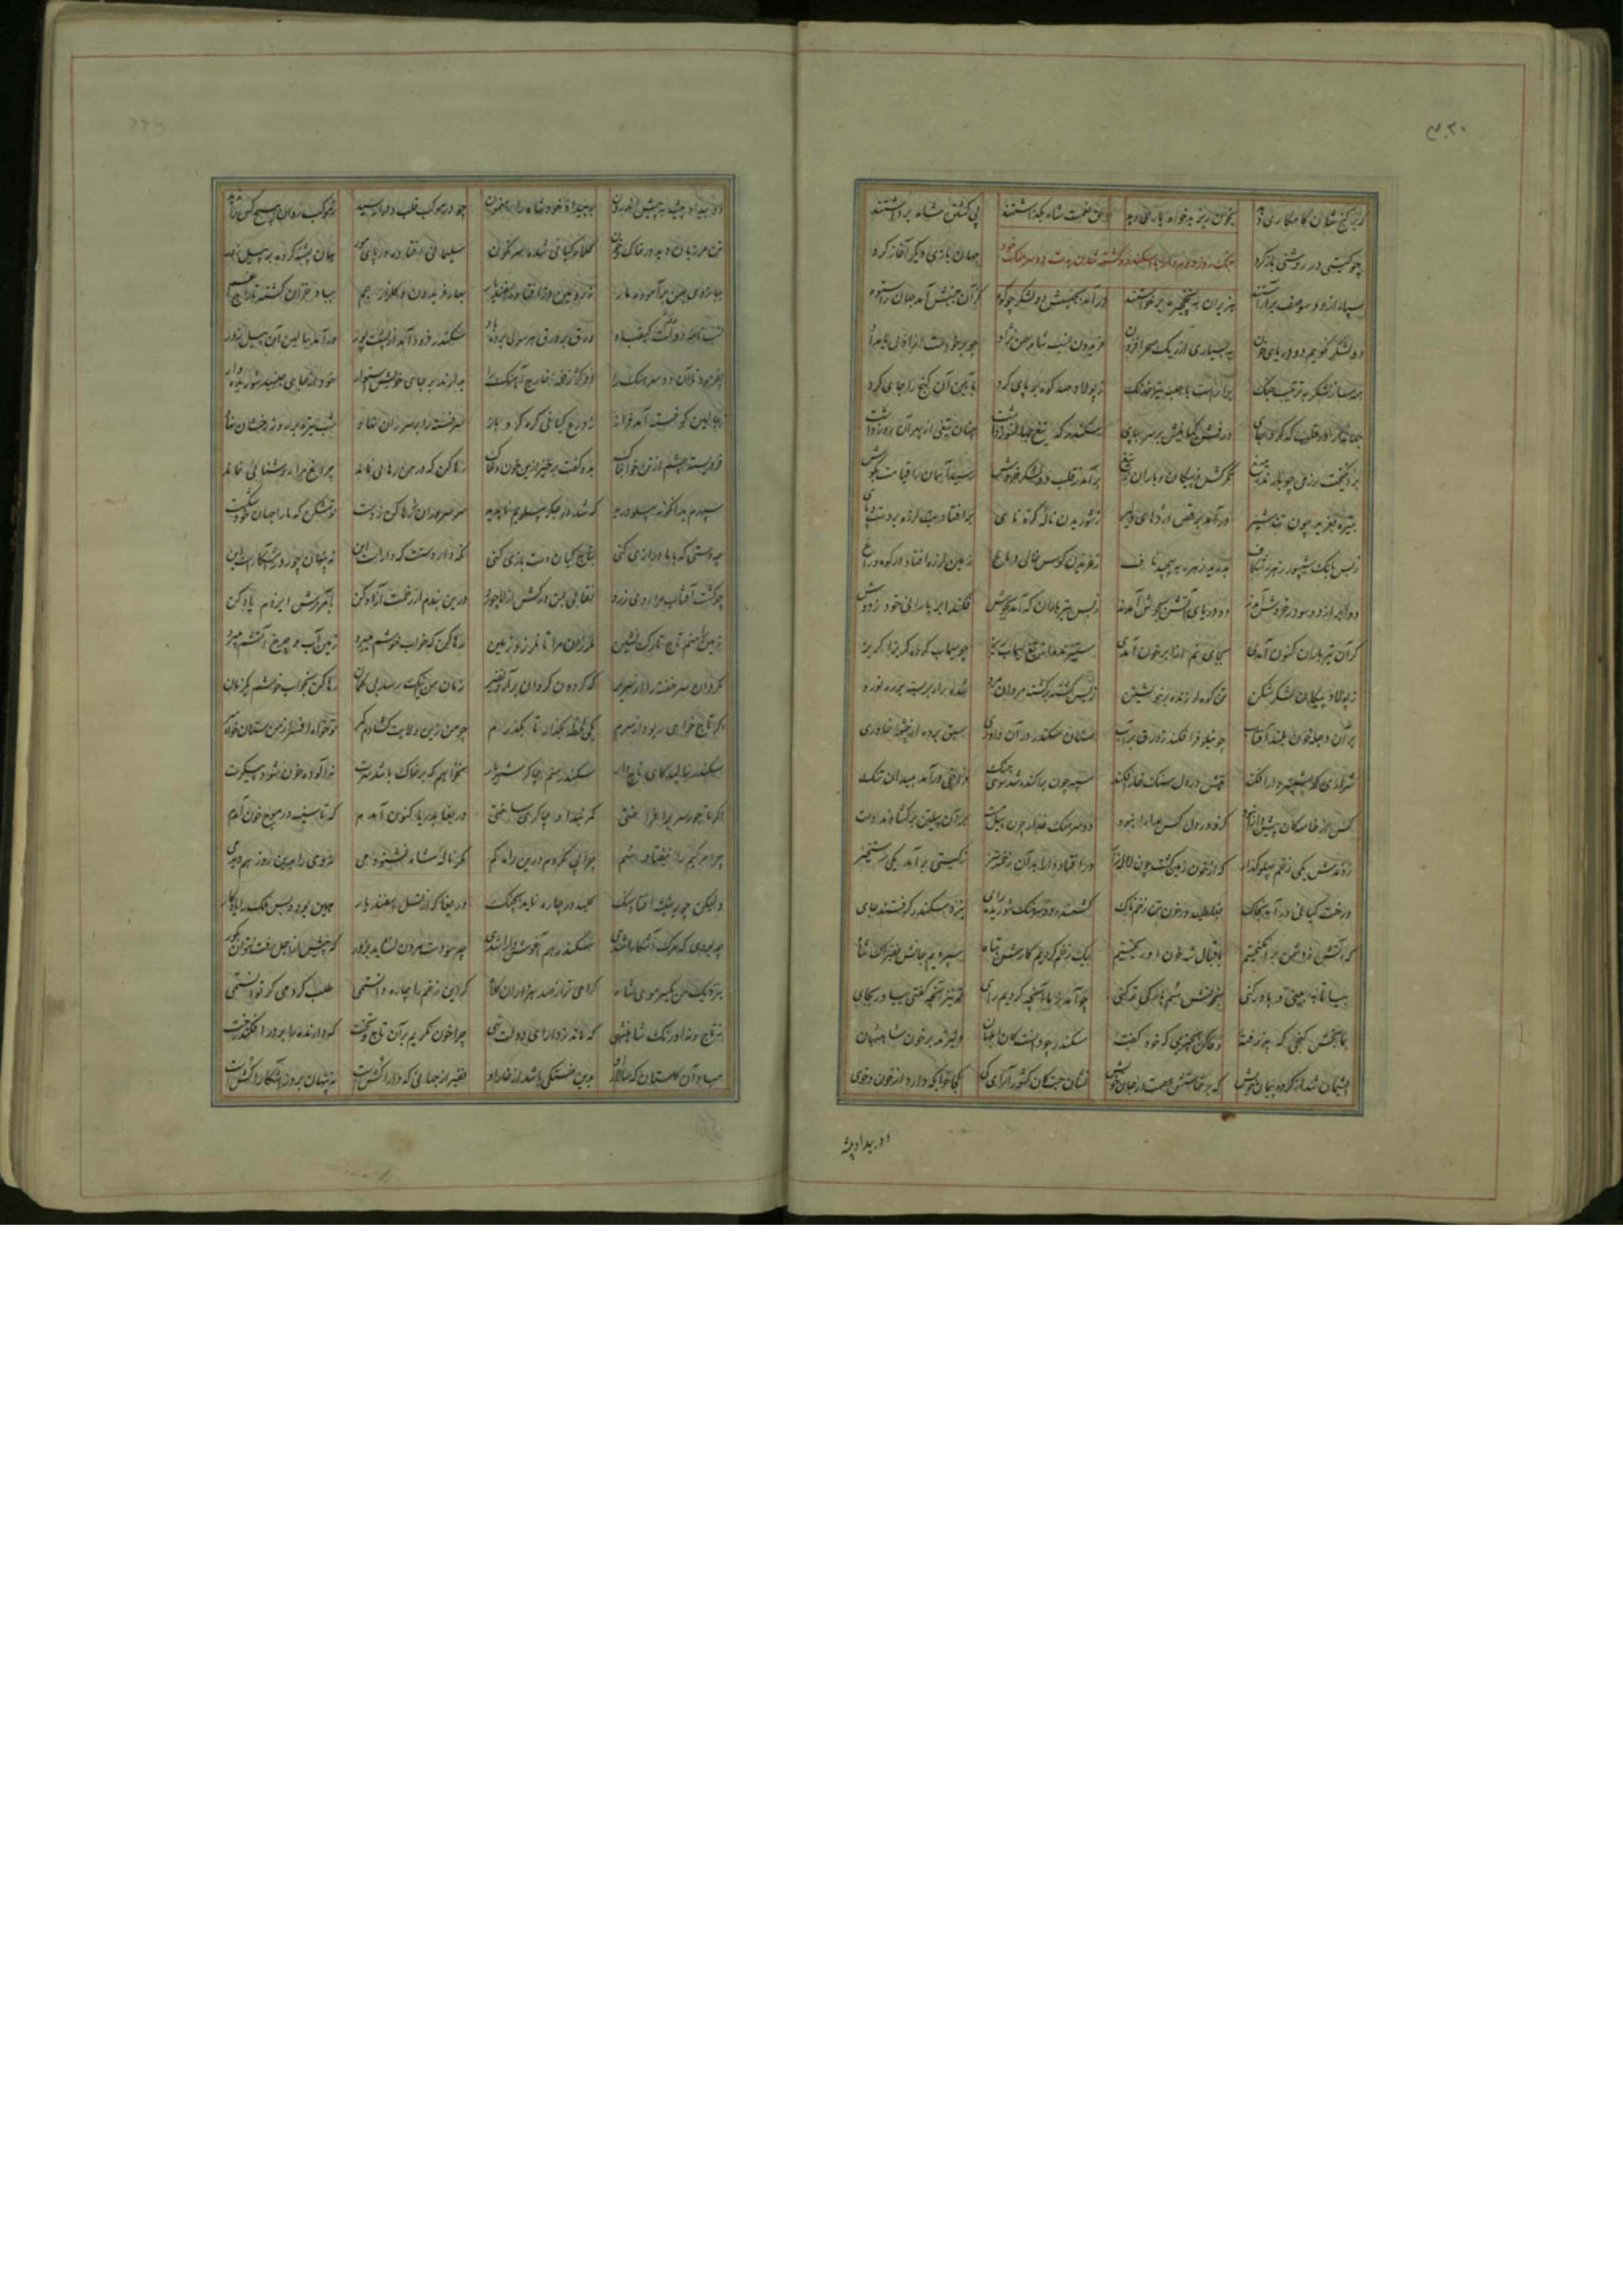 ۳۰۲
کزان گنج شان کامکاری دهد بخون ریز بدخواه یاری دهد حق نعمت شاه بگذاشتند پی کشتن شاه برداشتند
چو گیتی در روشنی باز کرد جهان بازی دیگر آغاز کرد
جنگ روز دوم دارا با اسکندر و کشته شدن بدست دو سرهنگ خود
سپاه از دو سو صف برآراستند هزبران به نخچیر برخواستند درآمد بجنبش دو لشکر چو کوه کزان جنبش آمد جهان را ستوه
دو لشکر نگویم دو دریای خون به بسیاری از ریگ صحرا فزون فریدون نسب شاه بهمن نژاد چو برخاست از اول بامداد
همه ساز لشکر به ترتیب جنگ برآراست از جعبه تیر خدنگ ز پولاد صد کوه بر پای کرد بآیین آن گنج را جای کرد
جناح آور قلب که کرد جای درفش کیانیش بر سر بپای سکندر که تیغ جهانسوز داشت چنان تیغی از بهر آن روز داشت
برانگیخت رزمی چو بارنده میغ تگرگش ز پیکان و باران ز تیغ برآمد ز قلب دو لشکر خروش رسید آسمان را قیامت بگوش
تبیره بغرید چون تند شیر درآمد برقص اژدهای دلیر ز شوریدن ناله کره نای برافتاد تب لرزه بر دست و پای
ز بس بانگ شیپور زهره شکاف بدرید زهره بپیچید ناف ز غریدن کوس خالی دماغ زمین لرزه افتاد در کوه و راغ
دو ابر از دو سو در خروش آمدند دو دریای آتش بجوش آمدند ز بس تیر باران که آمد بجوش فکند ابر بارانی خود ز دوش
گر آن تیر باران کنون آمدی بجای نم از ابر خون آمدی ستیزنده از تیغ سیماب ریز چو سیماب کرده گریزا گریز
ز پولاد پیکان لشکر شکن تن کوه لرزنده بر خویشتن ز بس کشته بر کشته مردان مرد شده راه بربسته بر ره نورد
بر آن دجله خون بلند آفتاب چو نیلوفر افکند زورق بر آب سنان سکندر در آن داوری سبق برده از چشمه خاوری
شراری که شمشیر دارا فکند تپش در دل سنگ خارا فکند سپه چون پراکنده شد سوی جنگ فراخی درآمد بمیدان تنگ
کس از خاصگان پیش دارا نبود کزو در دل کس مدارا نبود دو سرهنگ غدار چون پیل مست بر آن پیلتن برگشادند دست
زدندش یکی زخم پهلو گذار که از خون زمین گشت چون لاله زار درافتاد دارا بدان زخم تیز ز گیتی برآمد یکی رستخیز
درخت کیانی درآمد بخاک بغلطید در خون تن زخم ناک کشنده دو سرهنگ شوریده رای بنزد سکندر گرفتند جای
که آتش ز دشمن برانگیختیم باقبال شه خون او ریختیم بیک زخم کردیم کارش تباه سپردیم جانش بفتراک شاه
بیا تا ببینی و باور کنی بخونش سم بارگی تر کنی چو آمد ز ما آنچه کردیم رای تو نیز آنچه گفتی بیاور بجای
بما بخش گنجی که پذرفته وفا کن بچیزی که خود گفته سکندر چو دانست کان ابلهان دلیرند بر خون شاهنشهان
پشیمان شد از کرده پیمان خویش که برخاستش عصمت از جان خویش نشان جست کان کشور آرای کی کجا خوابگه دارد از خون و خوی
دو بیداد پیشه
دو بیداد پیشه به پیش اندرون به بیداد خود شاه را رهنمون چو در موکب قلب دارا رسید ز موکب روان هیچکس را ندید
تن مرزبان دید در خاک و خون کلاه کیانی شده سرنگون سلیمانی افتاده در پای مور همان پشه کرده بر پیل زور
ببازوی بهمن برآموده مار ز رویین دژ افتاده اسفندیار بهار فریدون و گلزار جم بباد خزان گشته تاراج غم
نسب نامه دولت کیقباد ورق بر ورق هر سویی برده باد سکندر فرود آمد از پشت بور درآمد ببالین آن پیل زور
بفرمود تا آن دو سرهنگ را دو کژ زخمه خارج آهنگ را بدارند بر جای خویش استوار خود از جای جنبید شوریده وار
ببالین گه خسته آمد فراز ز درع کیانی گره کرد باز سر خسته را بر سر ران نهاد شب تیره بر روز رخشان نهاد
فروبسته چشم آن تن خوابناک بدو گفت برخیز ازین خون و خاک رها کن که در من رهایی نماند چراغ مرا روشنایی نماند
سپهرم بدانگونه پهلو درید که شد در جگر پهلویم ناپدید سر سروران را رها کن ز دست تو مشکن که ما را جهان خود شکست
چه دستی که با ما درازی کنی بتاج کیان دست یازی کنی نگه دار دستت که داراست این نه پنهان چو روز آشکار است این
چو گشت آفتاب مرا روی زرد نقابی بمن درکش از لاجورد درین بندم از زحمت آزاد کن بآمرزش ایزدم یاد کن
زمین را منم تاج تارک نشین ملرزان مرا تا نلرزد زمین رها کن که خواب خوشم میبرد زمین آب و چرخ آتشم میبرد
مگردان سر خفته را از سریر که گردون گردان برآرد نفیر زمان من اینک رسد بی گمان رها کن بخواب خوشم یک زمان
اگر تاج خواهی ربود از سرم یکی لحظه بگذار تا بگذرم چو من زین ولایت گشادم کمر تو خواه افسر از من ستان خواه سر
سکندر بنالید کای تاجدار سکندر منم چاکر شهریار نخواهم که بر خاک باشد سرت نه آلوده خون شود پیکرت
اگر تاجور سر برافراختی کمر بند او چاکری ساختی دریغا بدریا کنون آمدم که تا سینه در موج خون آمدم
چرا مرکبم را نیفتاد سم چرا پی نکردم درین راه گم مگر ناله شاه نشنودمی نه روی را بدین روز هم دیدمی
ولیکن چو بر شیشه افتاد سنگ کلید در چاره ناید بچنگ دریغا که از نسل اسفندیار همین بود و بس ملک را یادگار
چه بودی که مرگ آشکارا شدی سکندر هم آغوش دارا شدی چه سودست مردن نشاید بزور که پیش از اجل رفت نتوان بگور
بنزدیک من یک سر موی شاه گرامی تر از صد هزاران کلاه گر این زخم را چاره دانستمی طلب کردمی گر توانستمی
نه تاج و نه اورنگ شاهنشهی که ماند ز دارای دولت تهی چرا خون نگریم بر آن تاج و تخت که دارنده را بر در افکند رخت
مباد آن گلستان که سالار او بدین خستگی باشد از خار او نفیر از جهانی که دارا کش است نه پنهان بروز آشکارا کش است